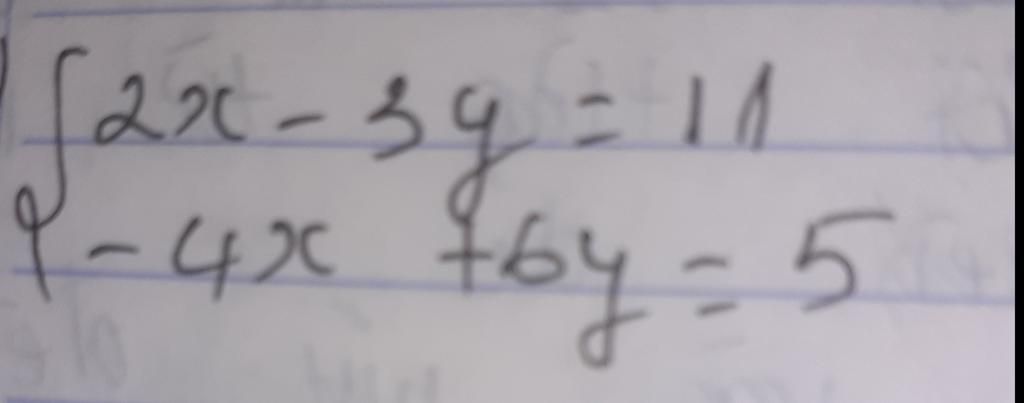 2x - 3y = 11
- 4x + 6y = 5